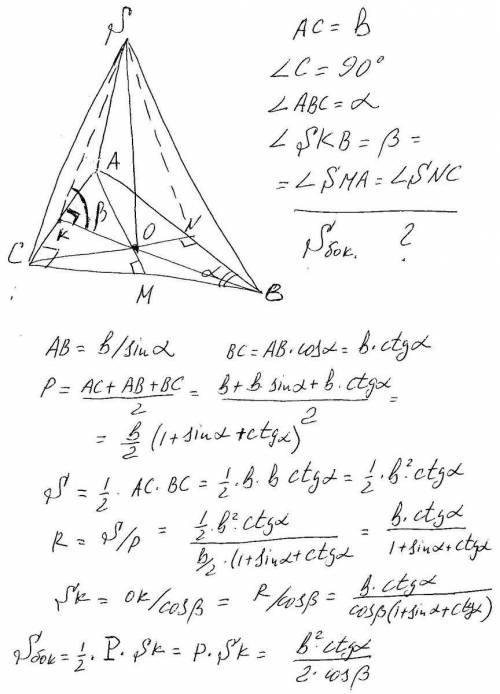 S
A
β
K
O
N
C
M
α
B
AC = b
∠C = 90°
∠ABC = α
∠SKB = β =
= ∠SMA = ∠SNC
Sбок. ?
AB = b/sinα BC = AB·cosα = b·ctgα
P = (AC + AB + BC)/2 = (b + b sinα + b·ctgα)/2 =
= b/2 (1 + sinα + ctgα)
S = 1/2 · AC·BC = 1/2·b·b ctgα = 1/2·b²·ctgα
R = S/p = (1/2·b²·ctgα)/(b/2·(1+sinα+ctgα) = b·ctgα/(1+sinα+ctgα)
SK = OK/cosβ = R/cosβ = b·ctgα/(cosβ(1+sinα+ctgα))
Sбок = 1/2·P·SK = p·SK = b²·ctgα/(2·cosβ)